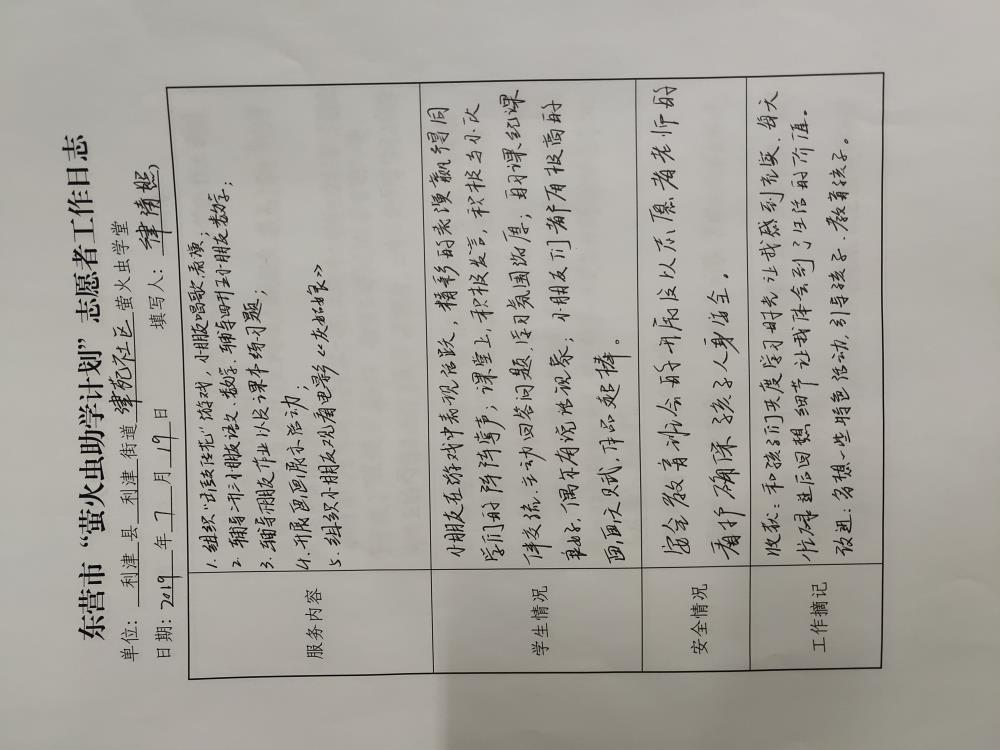 东营市“萤火虫助学计划”志愿者工作日志
单位：利津县 利津街道 津苑社区 萤火虫学堂
日期：2019年7月19日 填写人：
服务内容
1. 组织“击鼓传花”游戏，小朋友唱歌、表演；
2. 辅导二升三小朋友语文、数学、辅导四升五小朋友数学；
3. 辅导小朋友作业以及课本练习题；
4. 开展画画展示活动；
5. 组织小朋友观看电影《灰姑娘》
学生情况
小朋友在游戏中表现活跃，精彩的表演赢得同
学们的阵阵掌声；课堂上，积极发言，积极与小伙
伴交流、主动回答问题，学习氛围浓厚；自习课纪律
较好，偶尔有说话现象；小朋友们都有很高的
画画天赋，作品超棒。
安全情况
安全教育讲会的开展及以及志愿者老师的
看护确保了孩子人身安全。
工作摘记
收获：和孩子们共度学习时光让我感到充实，每天
忙碌并后回想细节让我体会到了生活的价值。
改进：多想一些特色活动，引导孩子、教育孩子。